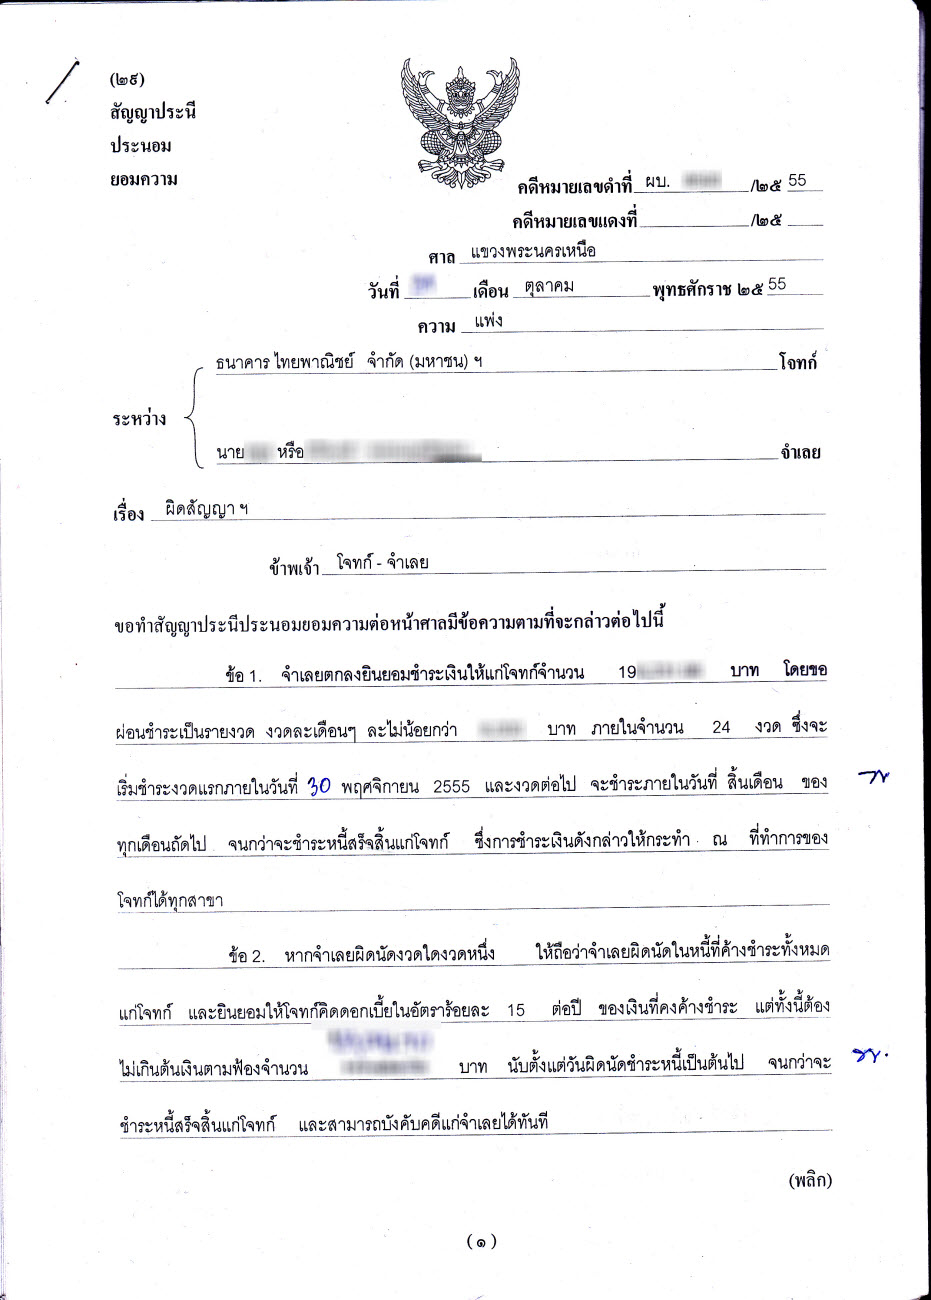 (๒๙)
สัญญาประนี
ประนอม
ยอมความ
คดีหมายเลขดำที่ ผบ. /๒๕ 55
คดีหมายเลขแดงที่ /๒๕
ศาล แขวงพระนครเหนือ
วันที่ เดือน ตุลาคม พุทธศักราช ๒๕ 55
ความ แพ่ง
ธนาคาร ไทยพาณิชย์ จำกัด (มหาชน) ฯ โจทก์
ระหว่าง
นาย หรือ จำเลย
เรื่อง ผิดสัญญา ฯ
ข้าพเจ้า โจทก์ - จำเลย
ขอทำสัญญาประนีประนอมยอมความต่อหน้าศาลมีข้อความตามที่จะกล่าวต่อไปนี้
ข้อ 1. จำเลยตกลงยินยอมชำระเงินให้แก่โจทก์จำนวน 19 บาท โดยขอ
ผ่อนชำระเป็นรายงวด งวดละเดือนๆ ละไม่น้อยกว่า บาท ภายในจำนวน 24 งวด ซึ่งจะ
เริ่มชำระงวดแรกภายในวันที่ 30 พฤศจิกายน 2555 และงวดต่อไป จะชำระภายในวันที่ สิ้นเดือน ของ
ทุกเดือนถัดไป จนกว่าจะชำระหนี้สร็จสิ้นแก่โจทก์ ซึ่งการชำระเงินดังกล่าวให้กระทำ ณ ที่ทำการของ
โจทก์ได้ทุกสาขา
ข้อ 2. หากจำเลยผิดนัดงวดใดงวดหนึ่ง ให้ถือว่าจำเลยผิดนัดในหนี้ที่ค้างชำระทั้งหมด
แก่โจทก์ และยินยอมให้โจทก์คิดดอกเบี้ยในอัตราร้อยละ 15 ต่อปี ของเงินที่คงค้างชำระ แต่ทั้งนี้ต้อง
ไม่เกินต้นเงินตามฟ้องจำนวน บาท นับตั้งแต่วันผิดนัดชำระหนี้เป็นต้นไป จนกว่าจะ
ชำระหนี้สร็จสิ้นแก่โจทก์ และสามารถบังคับคดีแก่จำเลยได้ทันที
(พลิก)
(๑)